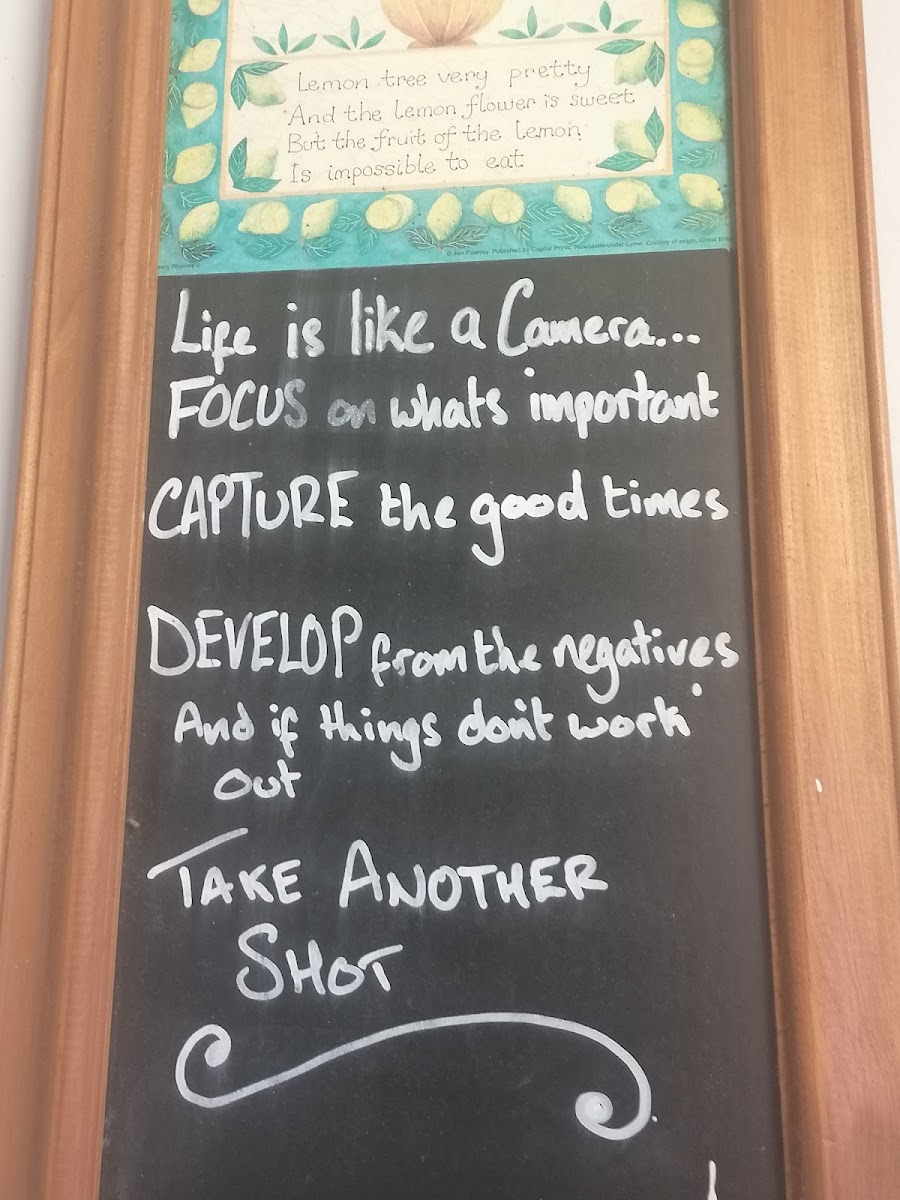 Lemon tree very pretty
And the lemon flower is sweet
But the fruit of the lemon
Is impossible to eat
© Jan Pashley. Published by Capital Prints, Newcastle-under-Lyme. Country of origin, Great
Life is like a Camera...
FOCUS on whats important
CAPTURE the good times
DEVELOP from the negatives
And if things don't work
out
TAKE ANOTHER
SHOT